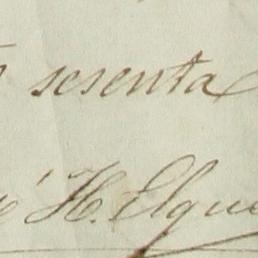 sesenta
H. Elgue